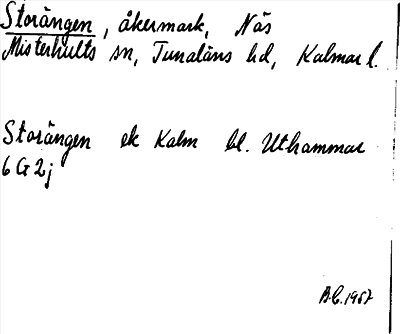 Storängen, åkermark, Näs
Misterhults sn, Tunaläns hd, Kalmar l.
Storängen ek Kalm bl. Uthammar
6 G 2 j
B.C. 1967